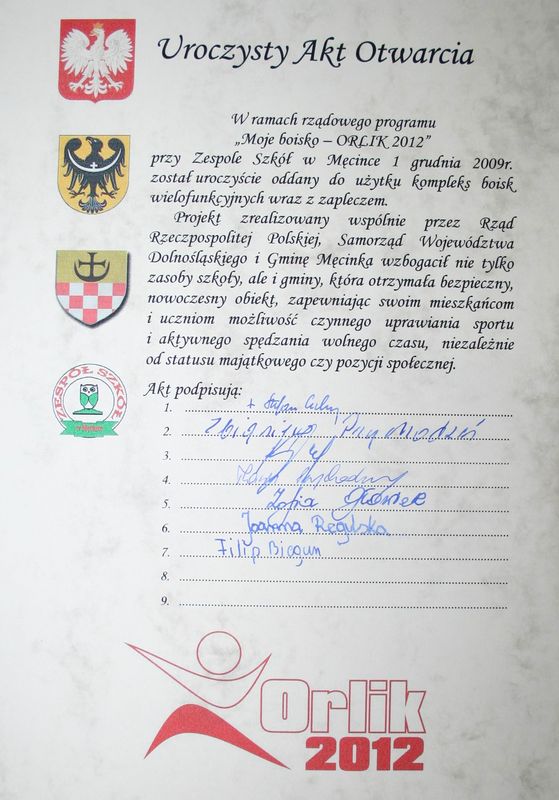 Uroczysty Akt Otwarcia
W ramach rządowego programu
„Moje boisko – ORLIK 2012”
przy Zespole Szkół w Męcince 1 grudnia 2009r.
został uroczyście oddany do użytku kompleks boisk
wielofunkcyjnych wraz z zapleczem.
Projekt zrealizowany wspólnie przez Rząd
Rzeczpospolitej Polskiej, Samorząd Województwa
Dolnośląskiego i Gminę Męcinka wzbogacił nie tylko
zasoby szkoły, ale i gminy, która otrzymała bezpieczny,
nowoczesny obiekt, zapewniając swoim mieszkańcom
i uczniom możliwość czynnego uprawiania sportu
i aktywnego spędzania wolnego czasu, niezależnie
od statusu majątkowego czy pozycji społecznej.
ZESPÓŁ SZKÓŁ
w Męcince
Akt podpisują:
1. +
2. Zbigniew
3.
4.
5. Zofia
6. Joanna Regulska
7. Filip Biegun
8.
9.
Orlik
2012